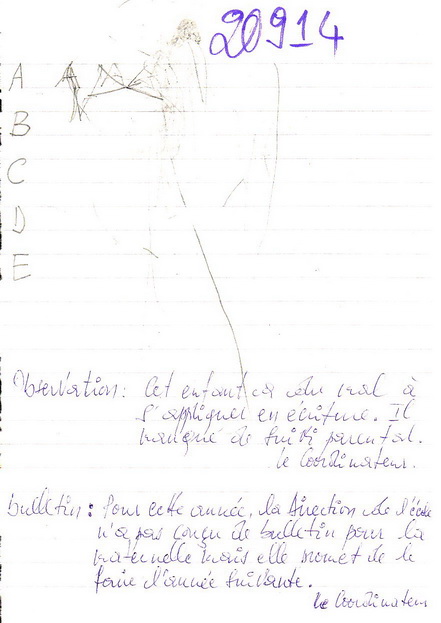 20914
A A
B
C
D
E
Observation: Cet enfant a du mal à
s'appliquer en écriture. Il
manque de suivi parental.
Le Coordinateur.
bulletin: Pour cette année, la Direction de l'école
n'a pas conçu de bulletin pour la
maternelle mais elle promet de le
faire l'année suivante.
Le Coordinateur